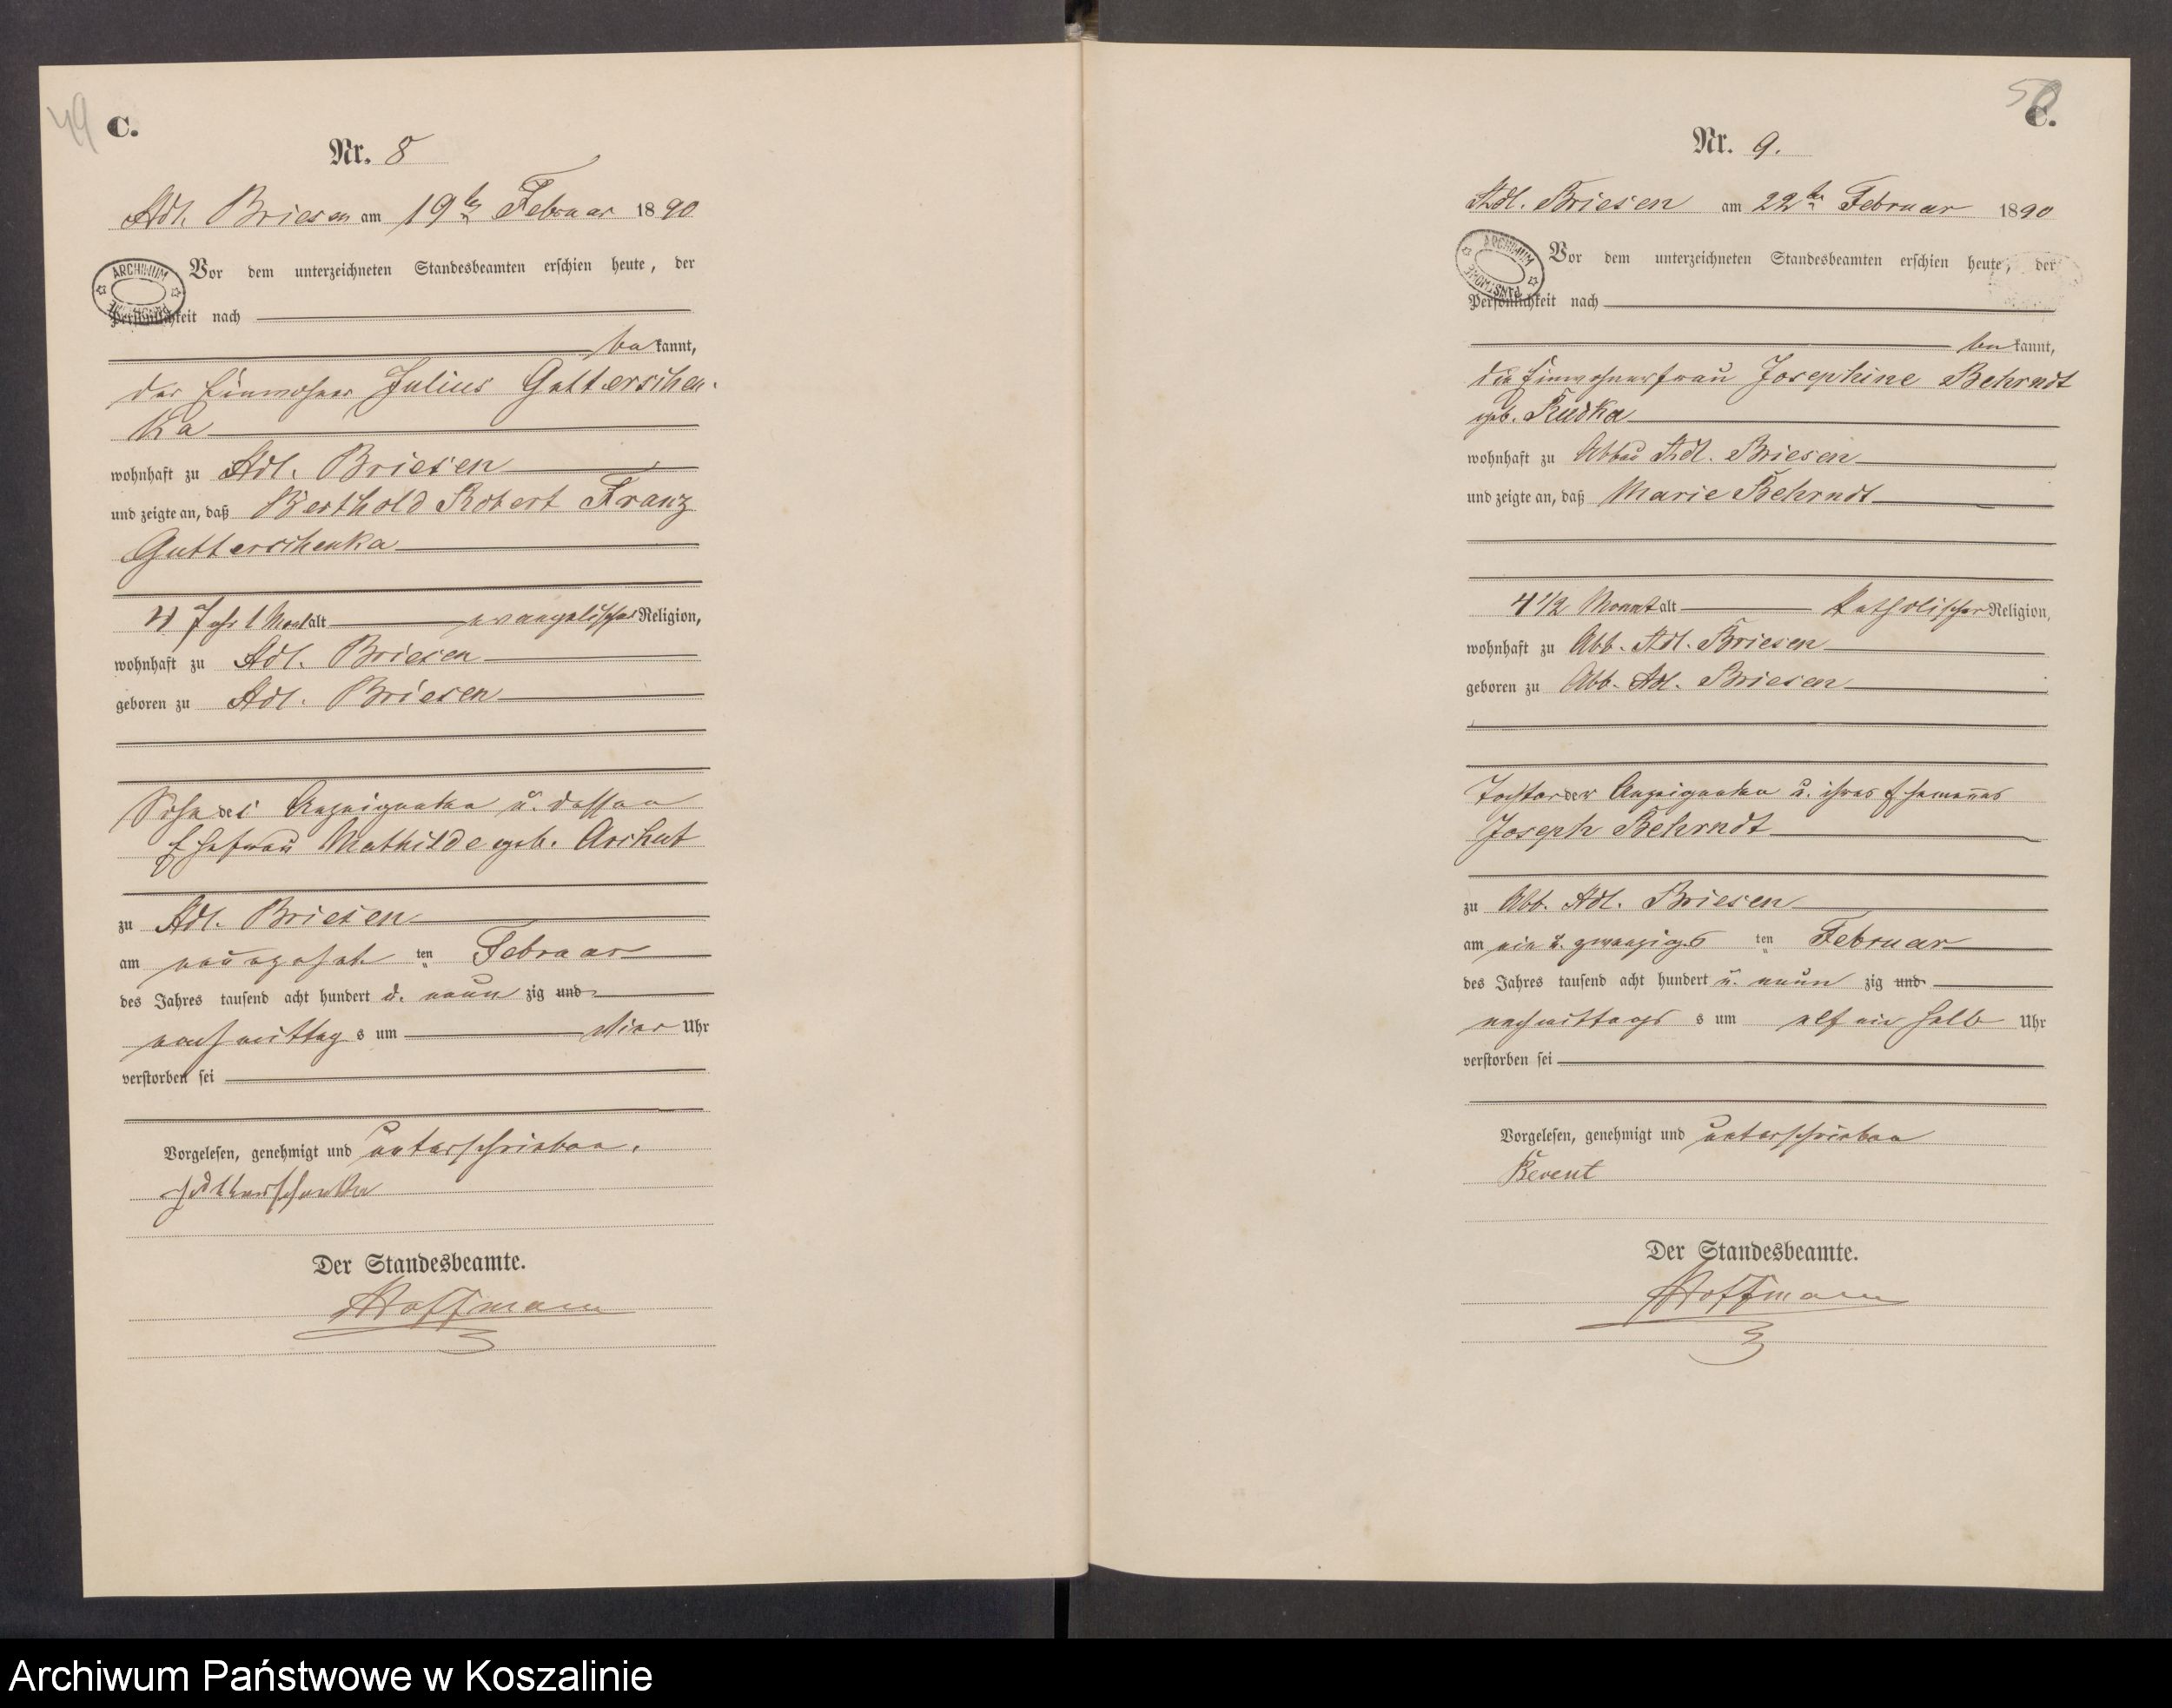 49
C.
Nr. 8
Adl. Briesen am 19ten Februar 1890
Vor dem unterzeichneten Standesbeamten erschien heute, der
Persönlichkeit nach
bekannt,
der Einwohner Julius Gutterschen-
ka
wohnhaft zu Adl. Briesen
und zeigte an, daß Berthold Robert Franz
Gutterschenka
4 Jahr 1 Monat alt evangelischer Religion,
wohnhaft zu Adl. Briesen
geboren zu Adl. Briesen
Sohn des Anzeigenden u. dessen
Ehefrau Mathilde geb. Archut
zu Adl. Briesen
am neunzehnten Februar
des Jahres tausend acht hundert u. neunzig und
nachmittags um vier Uhr
verstorben sei
Vorgelesen, genehmigt und unterschrieben.
Gutterschenka
Der Standesbeamte.
Hoffmann
ARCHIWUM PAŃSTWOWE
50
C.
Nr. 9.
Adl. Briesen am 22ten Februar 1890
Vor dem unterzeichneten Standesbeamten erschien heute, der
Persönlichkeit nach
bekannt,
die Einwohnerfrau Josephine Behrndt
geb. Rudka
wohnhaft zu Abbau Adl. Briesen
und zeigte an, daß Marie Behrndt
4 1/2 Monat alt katholischer Religion,
wohnhaft zu Abb. Adl. Briesen
geboren zu Abb. Adl. Briesen
Tochter der Anzeigenden u. ihres Ehemannes
Joseph Behrndt
zu Abb. Adl. Briesen
am ein u. zwanzigsten Februar
des Jahres tausend acht hundert u. neunzig und
nachmittags um elf ein halb Uhr
verstorben sei
Vorgelesen, genehmigt und unterschrieben
Der Standesbeamte.
Hoffmann
ARCHIWUM PAŃSTWOWE
Archiwum Państwowe w Koszalinie